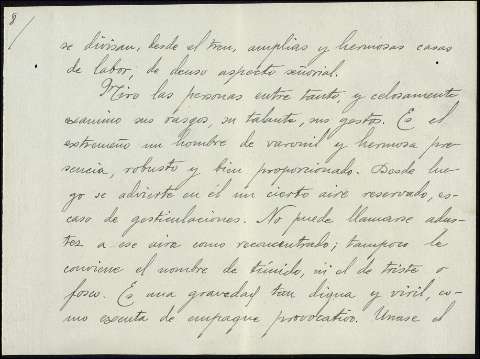 8
se divisan, desde el tren, amplias y hermosas casas
de labor, de denso aspecto señorial.
Miro las personas entre tanto, y celosamente
examino sus rasgos, su talante, sus gestos. Es el
extremeño un hombre de varonil y hermosa pre
sencia, robusto y bien proporcionado. Desde lue-
go se advierte en él un cierto aire reservado, es-
caso de gesticulaciones. No puede llamarse adus-
tez a ese aire como reconcentrado; tampoco le
conviene el nombre de tímido, ni el de triste o
fosco. Es una gravedad tan digna y viril, co-
mo exenta de empaque provocativo. Unase el